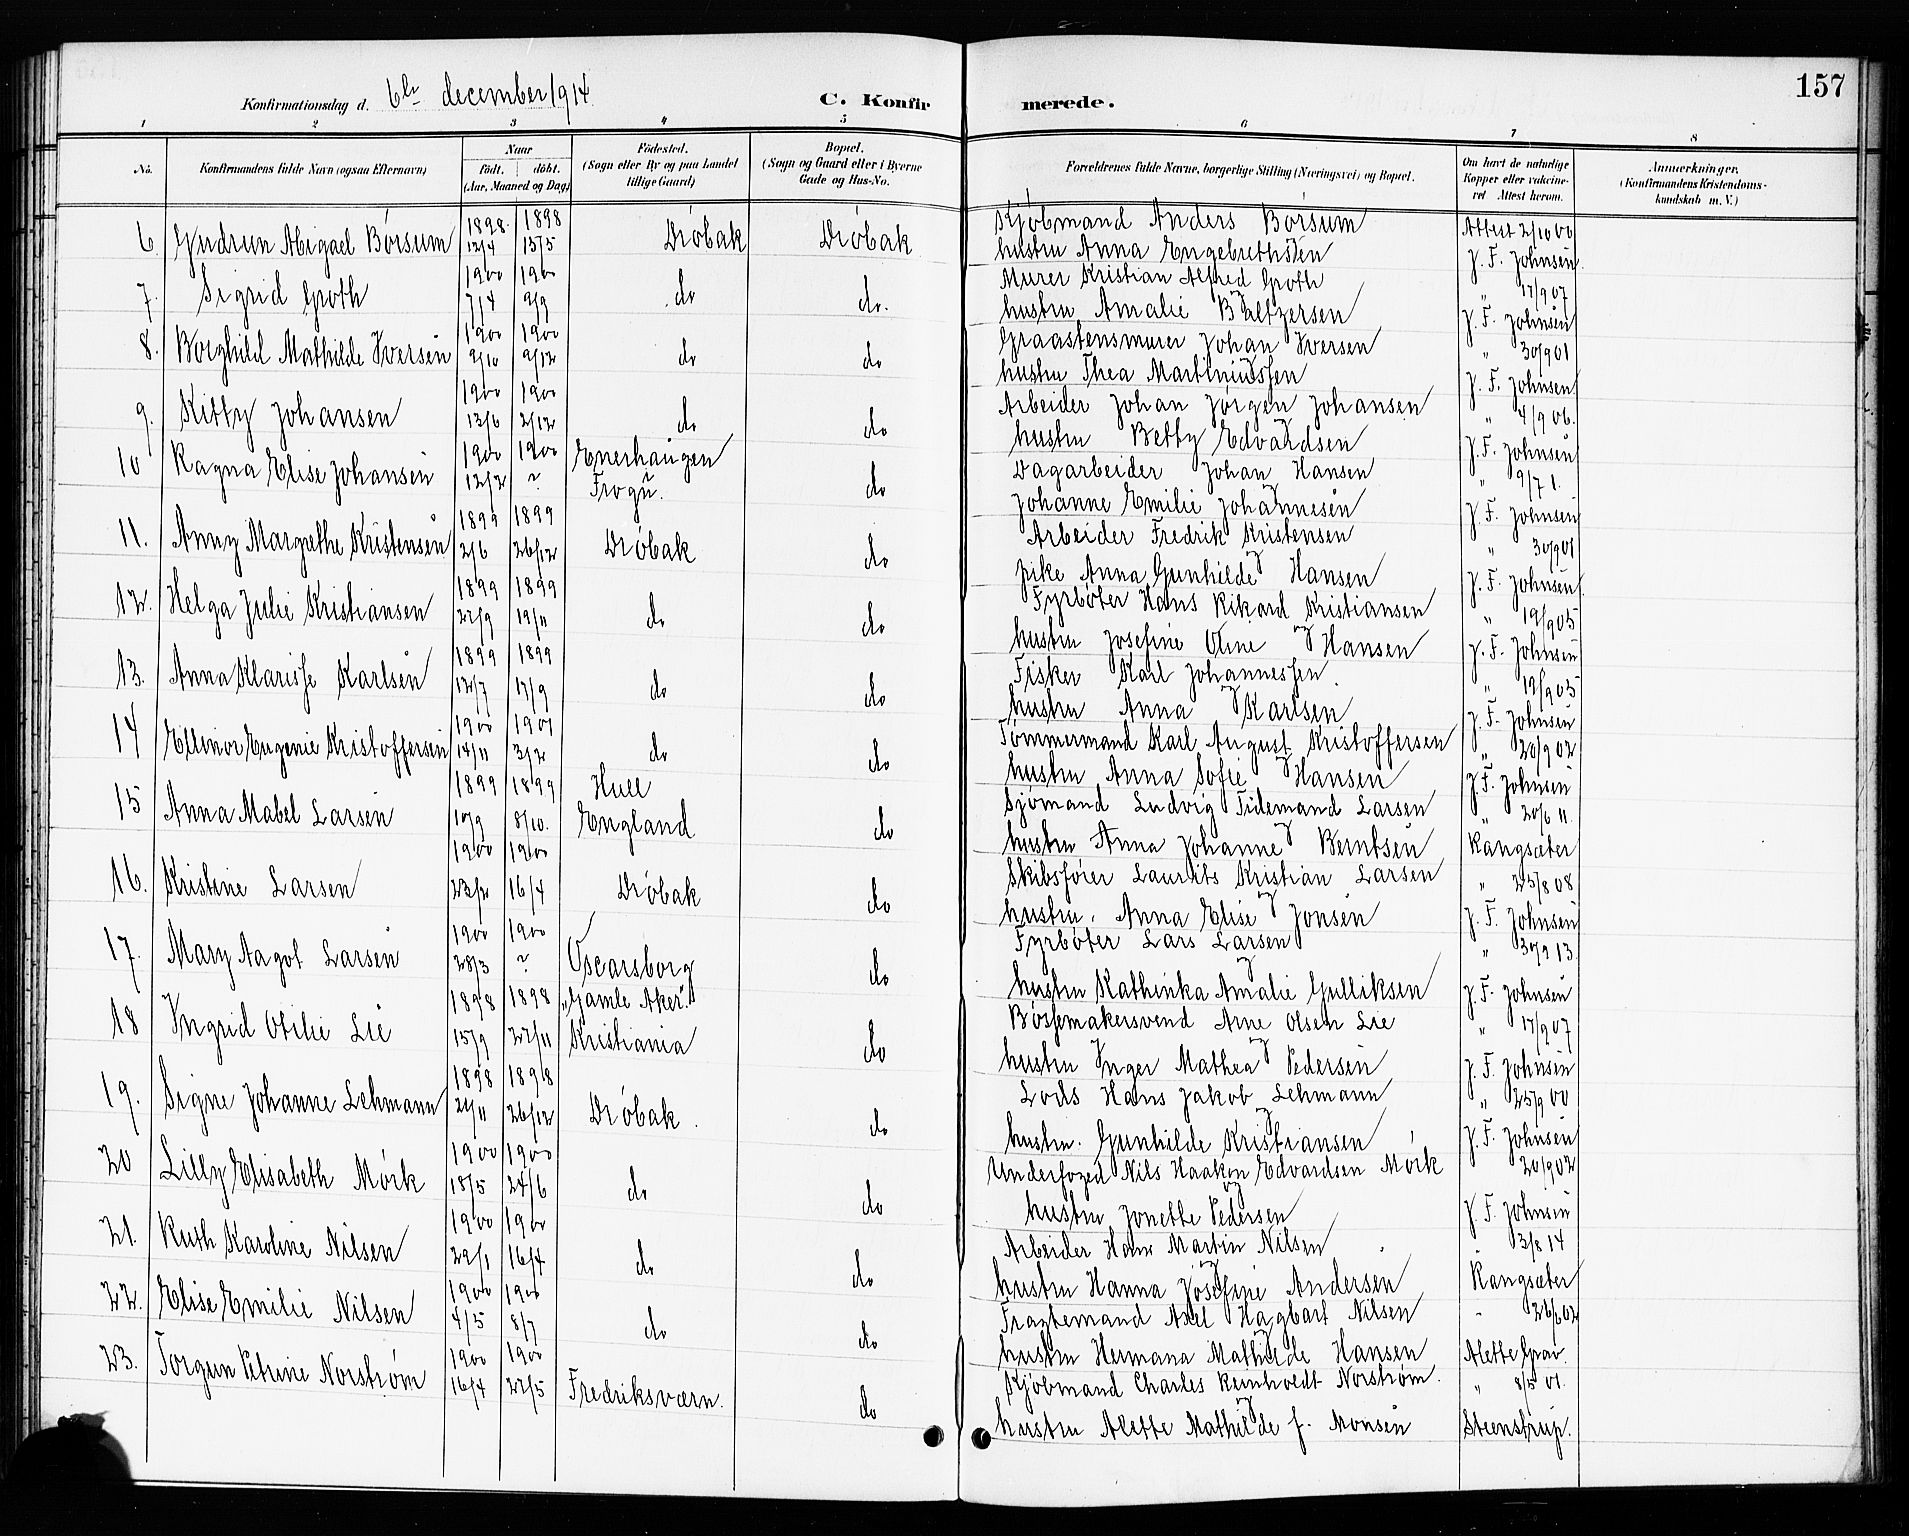 157
Konfirmationsdag d. 6te december 1914
C. Konfirmerede.
1 2 3 4 5 6 7 8
No.
Konfirmandens fulde Navn (ogsaa Efternavn)
Naar
födt. döbt.
(Aar, Maaned og Dag)
Födested.
(Sogn eller By og paa Landet
tillige Gaard)
Bopæl.
(Sogn og Gaard eller i Byerne
Gade og Hus-No.
Forældrenes fulde Navne, borgerlige Stilling (Næringsvei) og Bopæl.
Om havt de naturlige
Kopper eller vakcine-
ret Attest herom.
Anmerkninger.
(Konfirmandens Kristendoms-
kundskab m. V.)
6. Gudrun Abigael Börsum 1898 13/4 1898 15/5 Dröbak Dröbak Kjöbmand Anders Börsum Attest 2/10 00
hustru Anna Engebrethsen J. F. Johnsen
7. Sigrid Groth 1900 7/4 1900 9/9 do do. Murer Kristian Alfred Groth " 17/9 07
hustru Amalie Baltzersen J. F. Johnsen
8. Borghild Mathilde Iversen 1900 9/10 1900 9/12 do do Graastensmurer Johan Iversen " 30/9 01
hustru Thea Martiniussen J. F. Johnsen
9. Kitty Johansen 1900 13/6 1900 2/12 do do Arbeider Johan Jörgen Johansen " 4/9 06.
hustru Betty Edvardsen J. F. Johnsen
10 Ragna Elise Johansen 1900 12/2 1900 ? Enerhaugen Frogn. do Dagarbeider Johan Hansen " 9/7 1.
Johanne Emilie Johannesen J. F. Johnsen
11. Anny Margrethe Kristensen 1899 2/6 1899 26/12 Dröbak do Arbeider Fredrik Kristensen " 30/9 01
pike Anna Gunhilde Hansen J. F. Johnsen
12. Helga Julie Kristiansen 1899 22/9 1899 19/11 do do Fyrböter Hans Rikard Kristiansen " 19/9 05
hustru Josefine Oline Hansen J. F. Johnsen
13. Anna Klarisse Karlsen 1899 12/7 1899 17/9 do do Fisker Karl Johannessen " 19/9 05
hustru Anna Karlsen J. F. Johnsen
14 Ellinor Eugenie Kristoffersen 1900 14/11 1901 3/2 do do Tömmermand Karl August Kristoffersen " 20/9 02
hustru Anna Sofie Hansen J. F. Johnsen
15 Anna Mabel Larsen 1899 10/9 1899 8/10. Hull England do Sjömand Ludvig Tidemand Larsen " 20/6 11.
hustru Anna Johanne Berntsen Rangsæter
16. Kristine Larsen 1900 23/2 1900 16/4 Dröbak do Skibsförer Laurits Kristian Larsen " 25/8 08
hustru. Anna Elise Jonsen J. F. Johnsen
17. Mary Aagot Larsen 1900 28/3 1900 ? Oscarsborg do Fyrböter Lars Larsen " 30/9 13
hustru Kathinka Amalie Gulliksen J. F. Johnsen
18 Ingrid Otilie Lie 1898 15/9 1898 27/11 "Gamle Aker". Kristiania do Bössemakersvend Arne Olsen Lie " 17/9 07
hustru Inger Mathea Pedersen J. F. Johnsen
19. Signe Johanne Lehmann 1898 21/11 1898 26/12 Dröbak. do Lods Hans Jakob Lehmann " 25/9 00
hustru. Gunhilde Kristiansen J. F. Johnsen
20 Lilly Elisabeth Mörk 1900 18/5 1900 24/6 do do Underfoged Nils Haakon Edvardsen Mörk 20/9 02
hustru Jonette Pedersen J. F. Johnsen
21. Ruth Karoline Nilsen 1900 29/1 1900 16/4 do do Arbeider Hans Martin Nilsen 3/8 14
hustru Hanna Josefine Andersen Rangsæter
22. Elise Emilie Nilsen 1900 4/5 1900 8/7 do do Fragtemand Axel Hagbart Nilsen " 26/6 02
hustru Hermana Mathilde Hansen Alette Grav.
23. Torgun Petrine Norström 1900 16/4 1900 27/5 Fredriksværn. do Kjöbmand Charles Reinholdt Norström. " 8/5 01.
hustru Alette Mathilde f. Monsen Steenstrup.